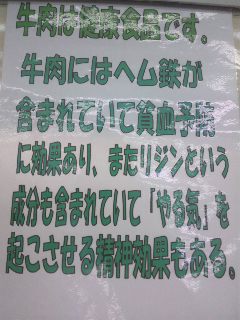 牛肉は健康食品です。
牛肉にはヘム鉄が
含まれていて貧血予防
に効果あり、またリジンという
成分も含まれていて「やる気」を
起こさせる精神効果もある。